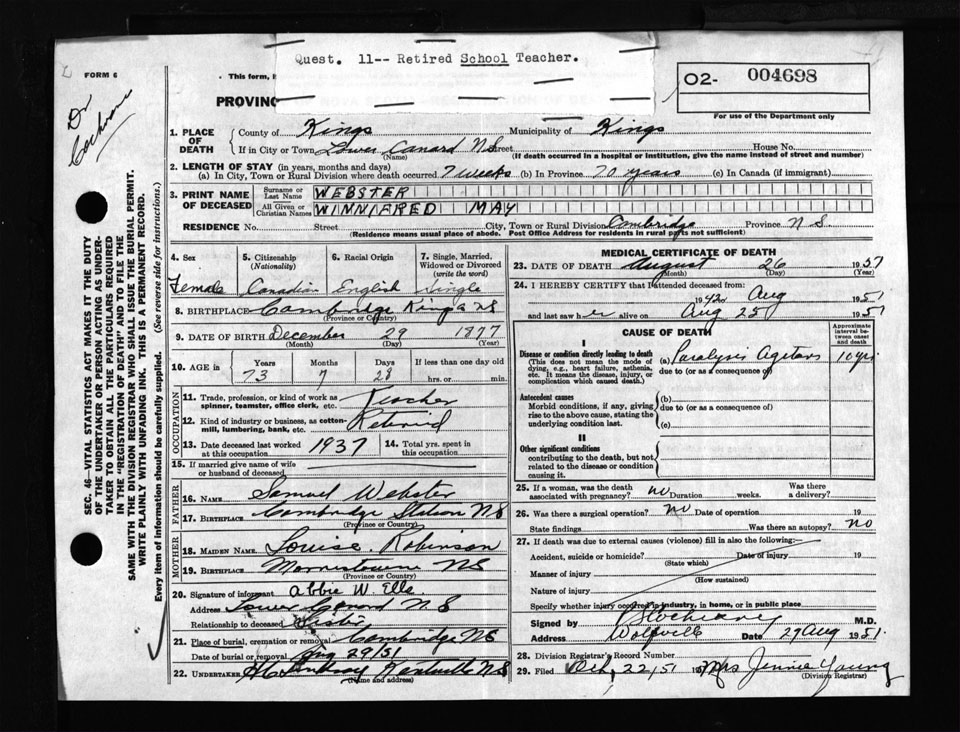 Quest. 11-- Retired School Teacher.
FORM 6
This form,
O2- 004698
PROVINC
For use of the Department only
Dr Cochrane
1. PLACE OF DEATH County of Kings Municipality of Kings
If in City or Town Lower Canard N S Street House No.
(Name) (If death occurred in a hospital or institution, give the name instead of street and number)
2. LENGTH OF STAY (in years, months and days)
(a) In City, Town or Rural Division where death occurred 7 weeks (b) In Province 70 years (c) In Canada (if immigrant)
3. PRINT NAME OF DECEASED Surname or Last Name WEBSTER
All Given or Christian Names WINNIFRED MAY
RESIDENCE No. Street City, Town or Rural Division Cambridge Province N S
(Residence means usual place of abode. Post Office Address for residents in rural parts not sufficient)
4. Sex 5. Citizenship (Nationality) 6. Racial Origin 7. Single, Married, Widowed or Divorced (write the word)
Female Canadian English Single
8. BIRTHPLACE Cambridge Kings NS
(Province or Country)
9. DATE OF BIRTH December 29 1877
(Month) (Day) (Year)
10. AGE in Years Months Days If less than one day old
73 7 28 hrs. or min.
OCCUPATION
11. Trade, profession, or kind of work as spinner, teamster, office clerk, etc. Teacher
12. Kind of industry or business, as cotton-mill, lumbering, bank, etc. Retired
13. Date deceased last worked at this occupation 1937 14. Total yrs. spent in this occupation
15. If married give name of wife or husband of deceased
FATHER
16. NAME Samuel Webster
17. BIRTHPLACE Cambridge Station NS
(Province or Country)
MOTHER
18. MAIDEN NAME Louise Robinson
19. BIRTHPLACE Morristowne NS
(Province or Country)
20. Signature of informant Abbie W. Ells
Address Lower Canard N S
Relationship to deceased Sister
21. Place of burial, cremation or removal Cambridge NS
Date of burial or removal Aug 29/51
22. UNDERTAKER Kentville NS
(Name and address)
MEDICAL CERTIFICATE OF DEATH
23. DATE OF DEATH August 26 1951
(Month) (Day) (Year)
24. I HEREBY CERTIFY that I attended deceased from:
1942 Aug 1951
and last saw her alive on Aug 25 1951
CAUSE OF DEATH
Approximate interval between onset and death
I
Disease or condition directly leading to death (a) Paralysis Agitans 10 yrs.
(This does not mean the mode of dying, e.g., heart failure, asthenia, etc. It means the disease, injury, or complication which caused death.) due to (or as a consequence of)
Antecedent causes (b)
Morbid conditions, if any, giving rise to the above cause, stating the underlying condition last. due to (or as a consequence of)
(c)
II
Other significant conditions
contributing to the death, but not related to the disease or condition causing it.
25. If a woman, was the death associated with pregnancy? no Duration weeks. Was there a delivery?
26. Was there a surgical operation? no Date of operation 19
State findings Was there an autopsy? no
27. If death was due to external causes (violence) fill in also the following:
Accident, suicide or homicide? Date of injury 19
(State which)
Manner of injury
(How sustained)
Nature of injury
Specify whether injury occurred in industry, in home, or in public place
Signed by M.D.
Address Wolfville Date 29 Aug 1951.
28. Division Registrar's Record Number
29. Filed Oct, 22/51 19 Mrs Jennie Young
(Division Registrar)
SEC. 46—VITAL STATISTICS ACT MAKES IT THE DUTY
OF THE UNDERTAKER OR PERSON ACTING AS UNDER-
TAKER TO OBTAIN ALL THE PARTICULARS REQUIRED
IN THE "REGISTRATION OF DEATH" AND TO FILE THE
SAME WITH THE DIVISION REGISTRAR WHO SHALL ISSUE THE BURIAL PERMIT.
WRITE PLAINLY WITH UNFADING INK. THIS IS A PERMANENT RECORD.
Every item of information should be carefully supplied. (See reverse side for instructions.)